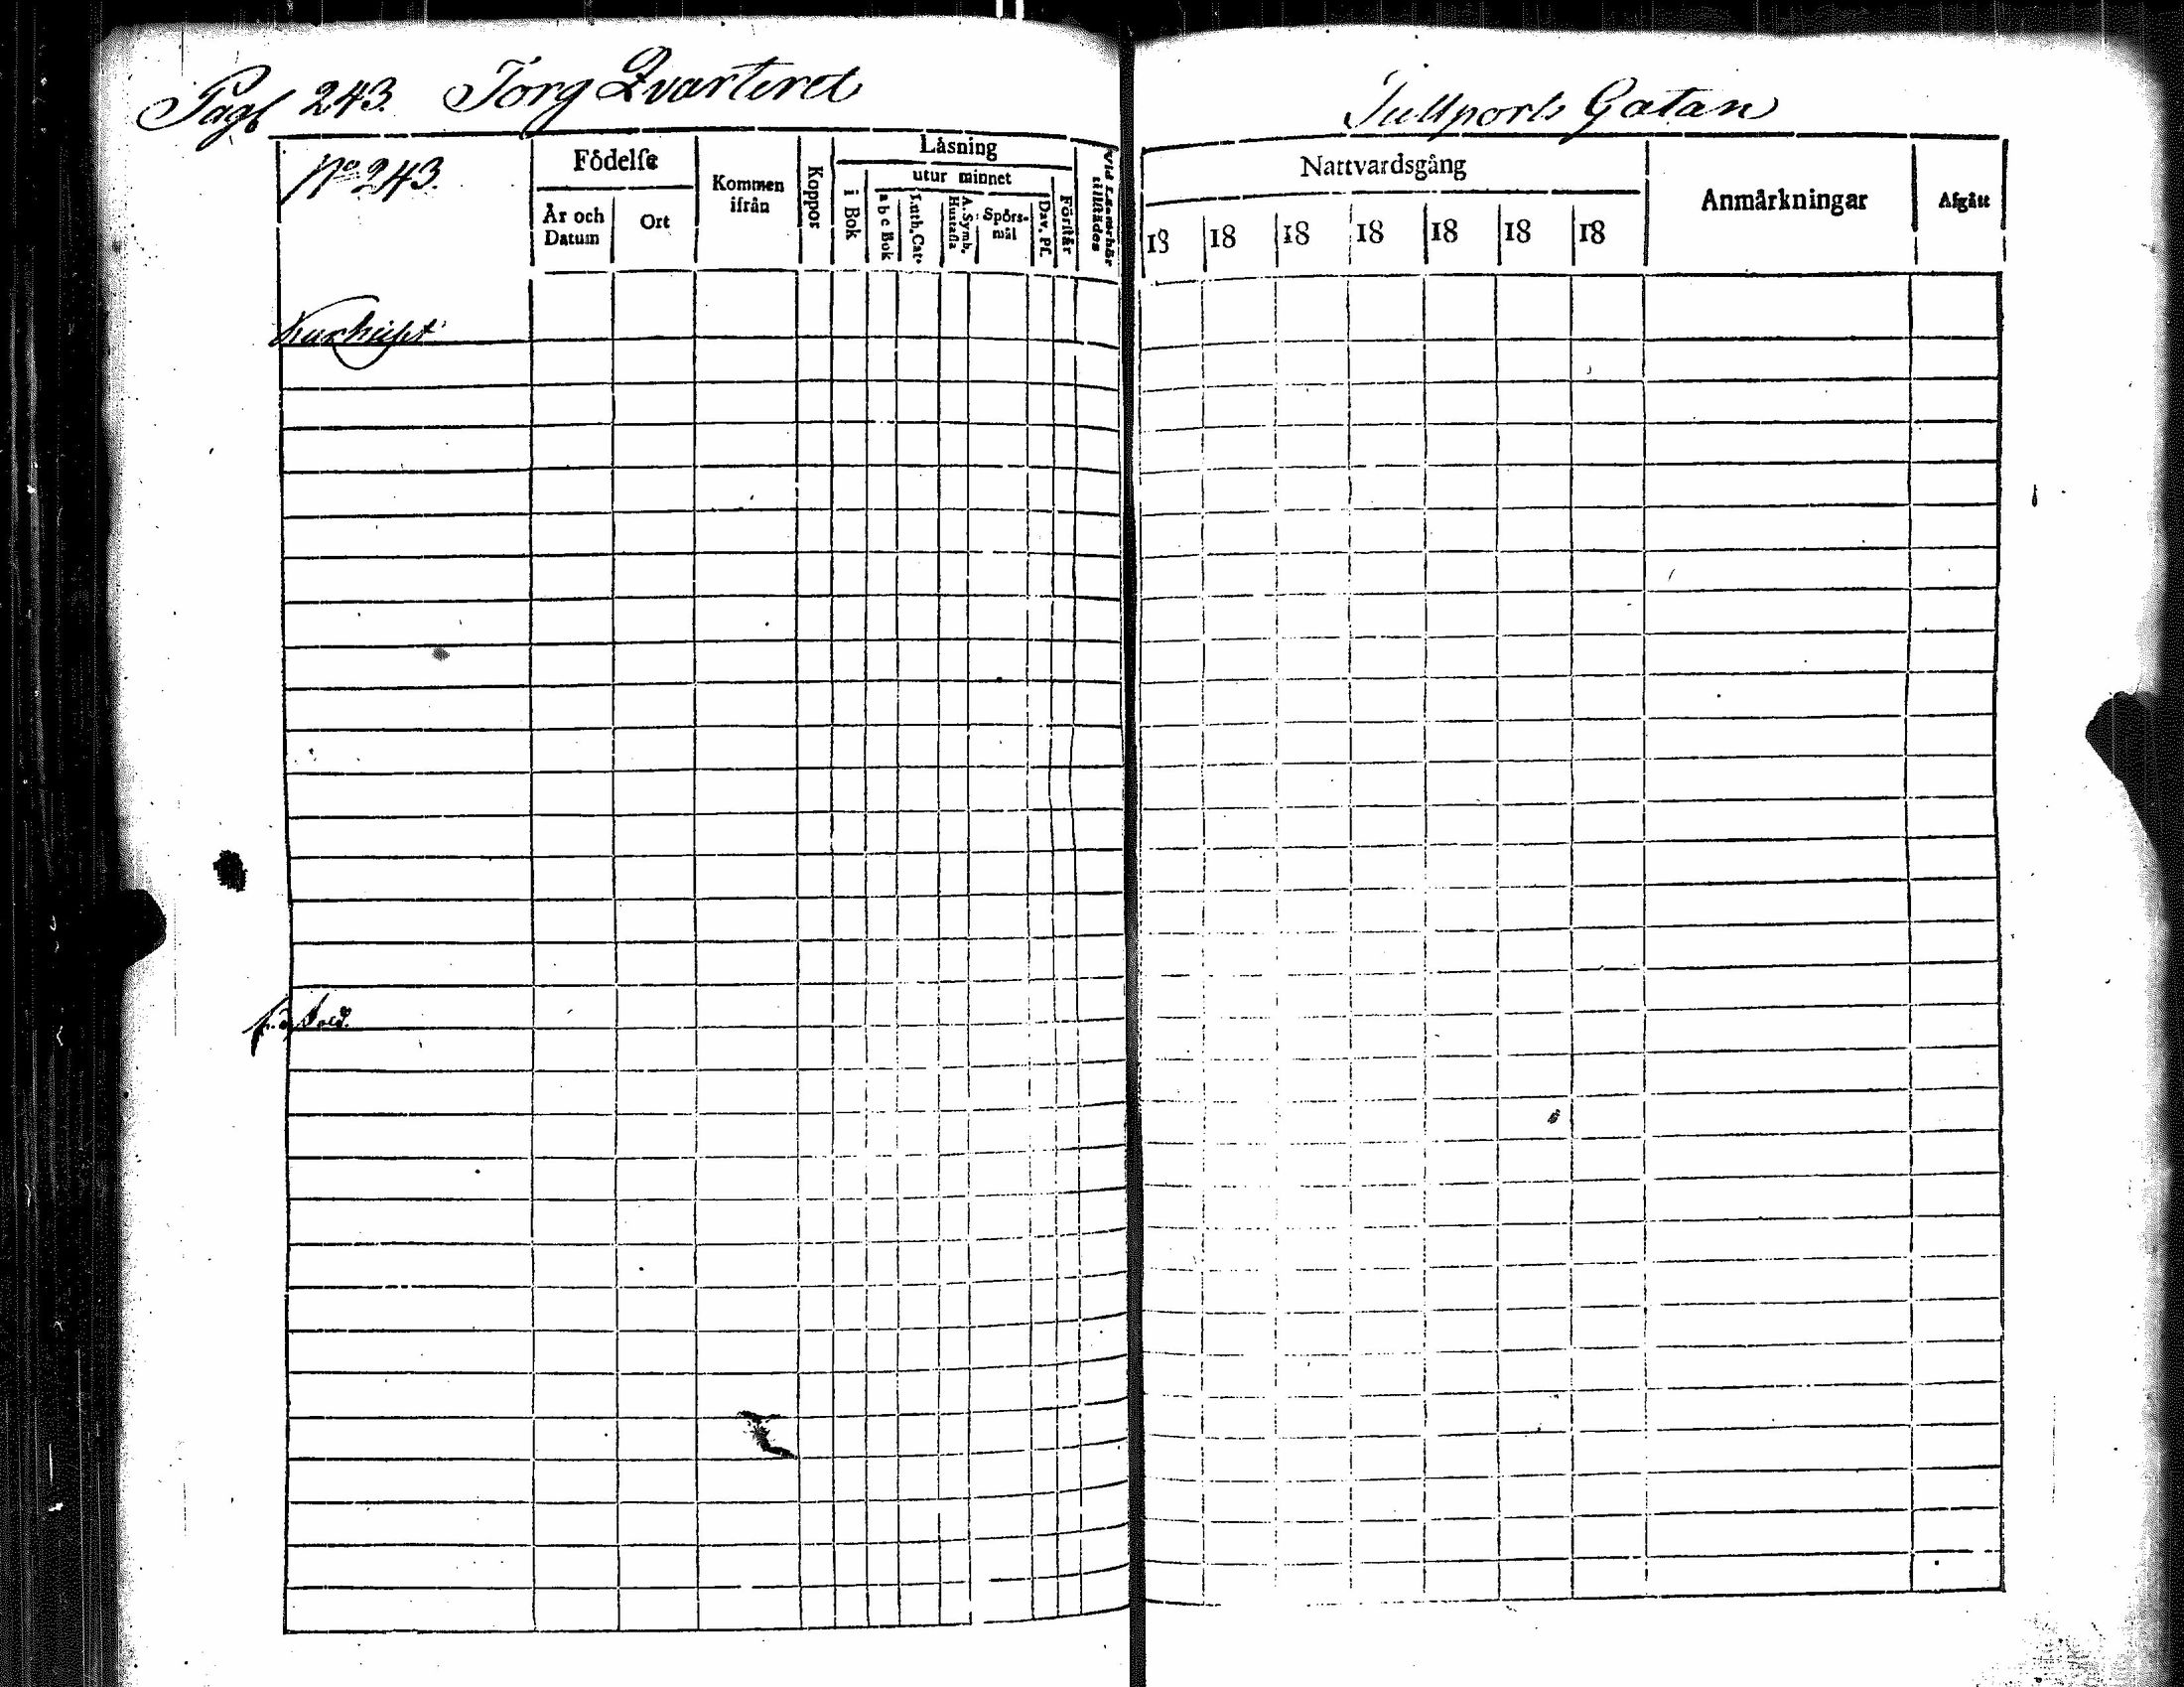 Pag. 243. Torg Qvarteret
No 243.
Födelſe
År och Datum
Ort
Kommen ifrån
Koppor
Läsning
i Bok
utur minnet
a b c Bok
Luth. Cat.
A. Symb. Hustafla
Spörs-mål
Dav. Pſ.
Förſtår
Tullports Gatan
Nattvardsgång
18 18 18 18 18 18 18
Anmärkningar
Afgått